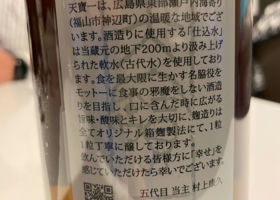 天寶一は、広島県東部瀬戸内海寄り
(福山市神辺町)の温暖な地域でござ
います。酒造りに使用する「仕込水」
は当蔵元の地下200mより汲み上げ
られた軟水(古代水)を使用しており
ます。食を最大限に生かす名脇役を
モットーに食事の邪魔をしない酒造
りを目指し、口に含んだ時に広がる
旨味・酸味とキレを大切に、麹造りは
全てオリジナル箱麹製法にて、1粒
1粒丁寧に醸しております。
飲んでいただける皆様方に「幸せ」を
感じていただけたら幸いでございます。
五代目 当主 村上康久